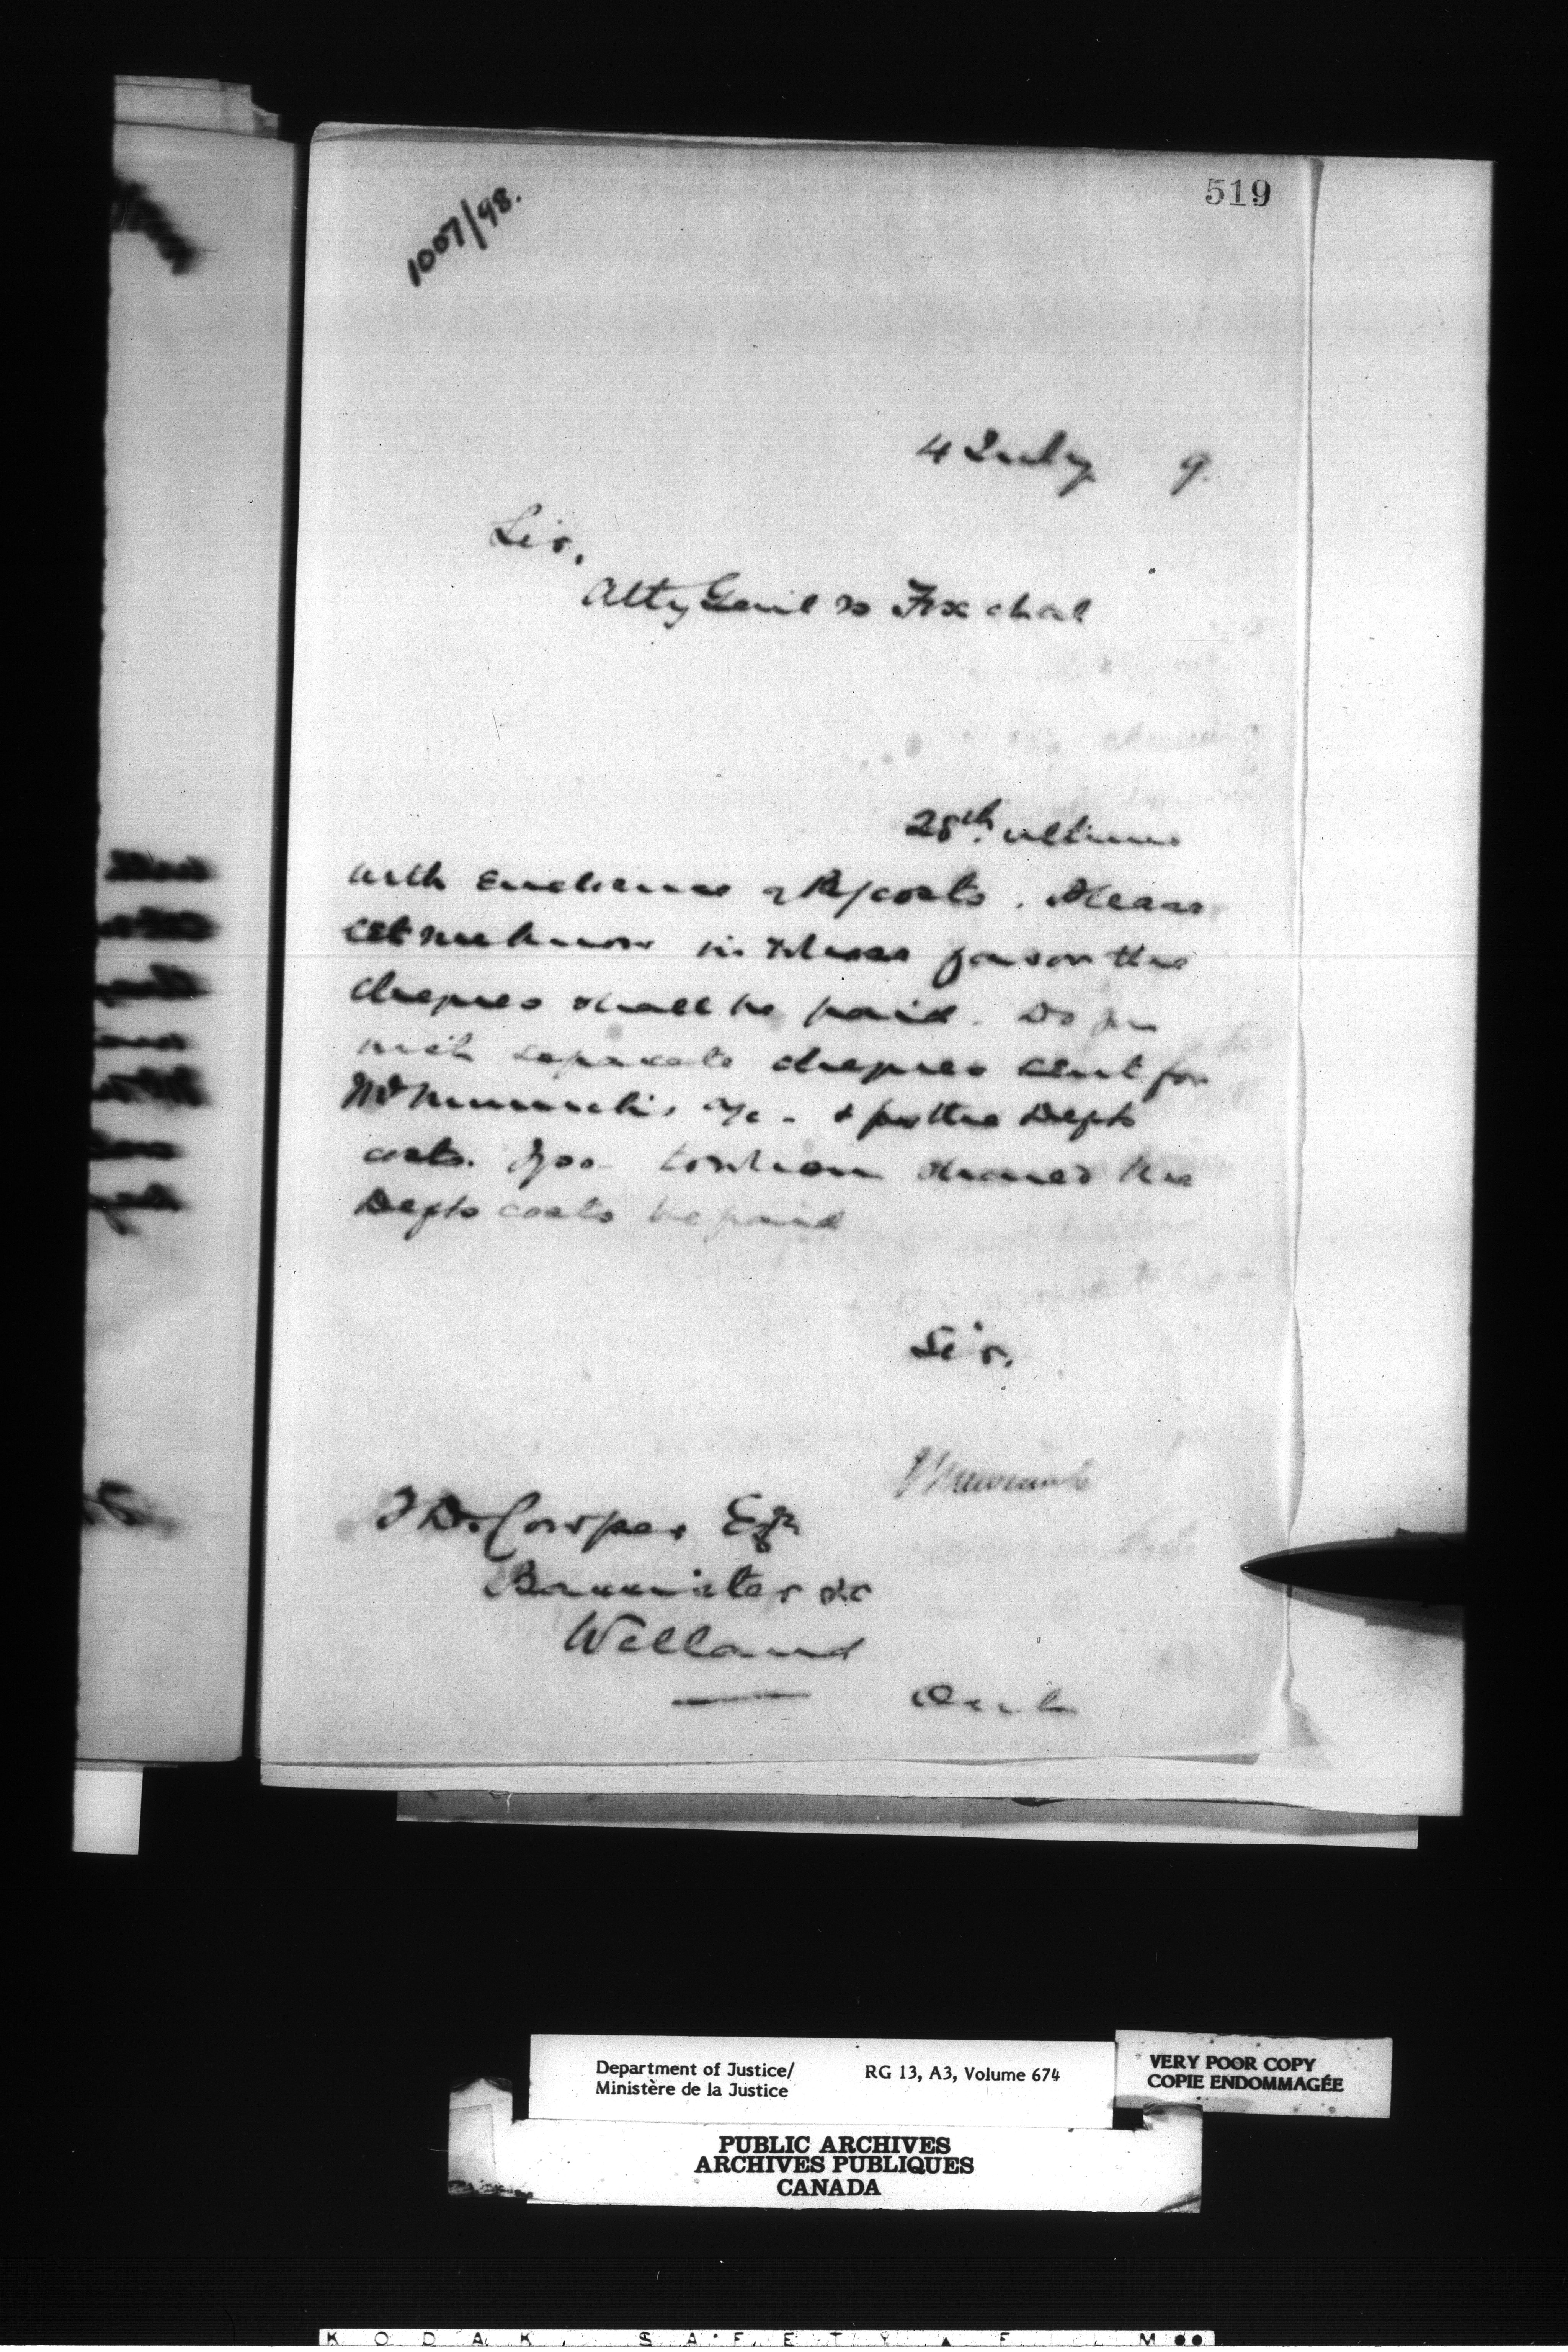 519
1007/98.
4 July 9
Sir,
Atty Genl vs Fox et al
28th. ultimo
with enclosures costs. Please
let me know in whose favor the
cheques shall be paid. Do you
wish separate cheques sent for
a/c - & for the Depts
costs. To whom should the
Depts costs be paid
Sir,
Newcombe
T D. Cowper Esqr
Barrister &c
Welland
Ont
Department of Justice/
Ministère de la Justice
RG 13, A3, Volume 674
VERY POOR COPY
COPIE ENDOMMAGÉE
PUBLIC ARCHIVES
ARCHIVES PUBLIQUES
CANADA
KODAK SAFETY FILM